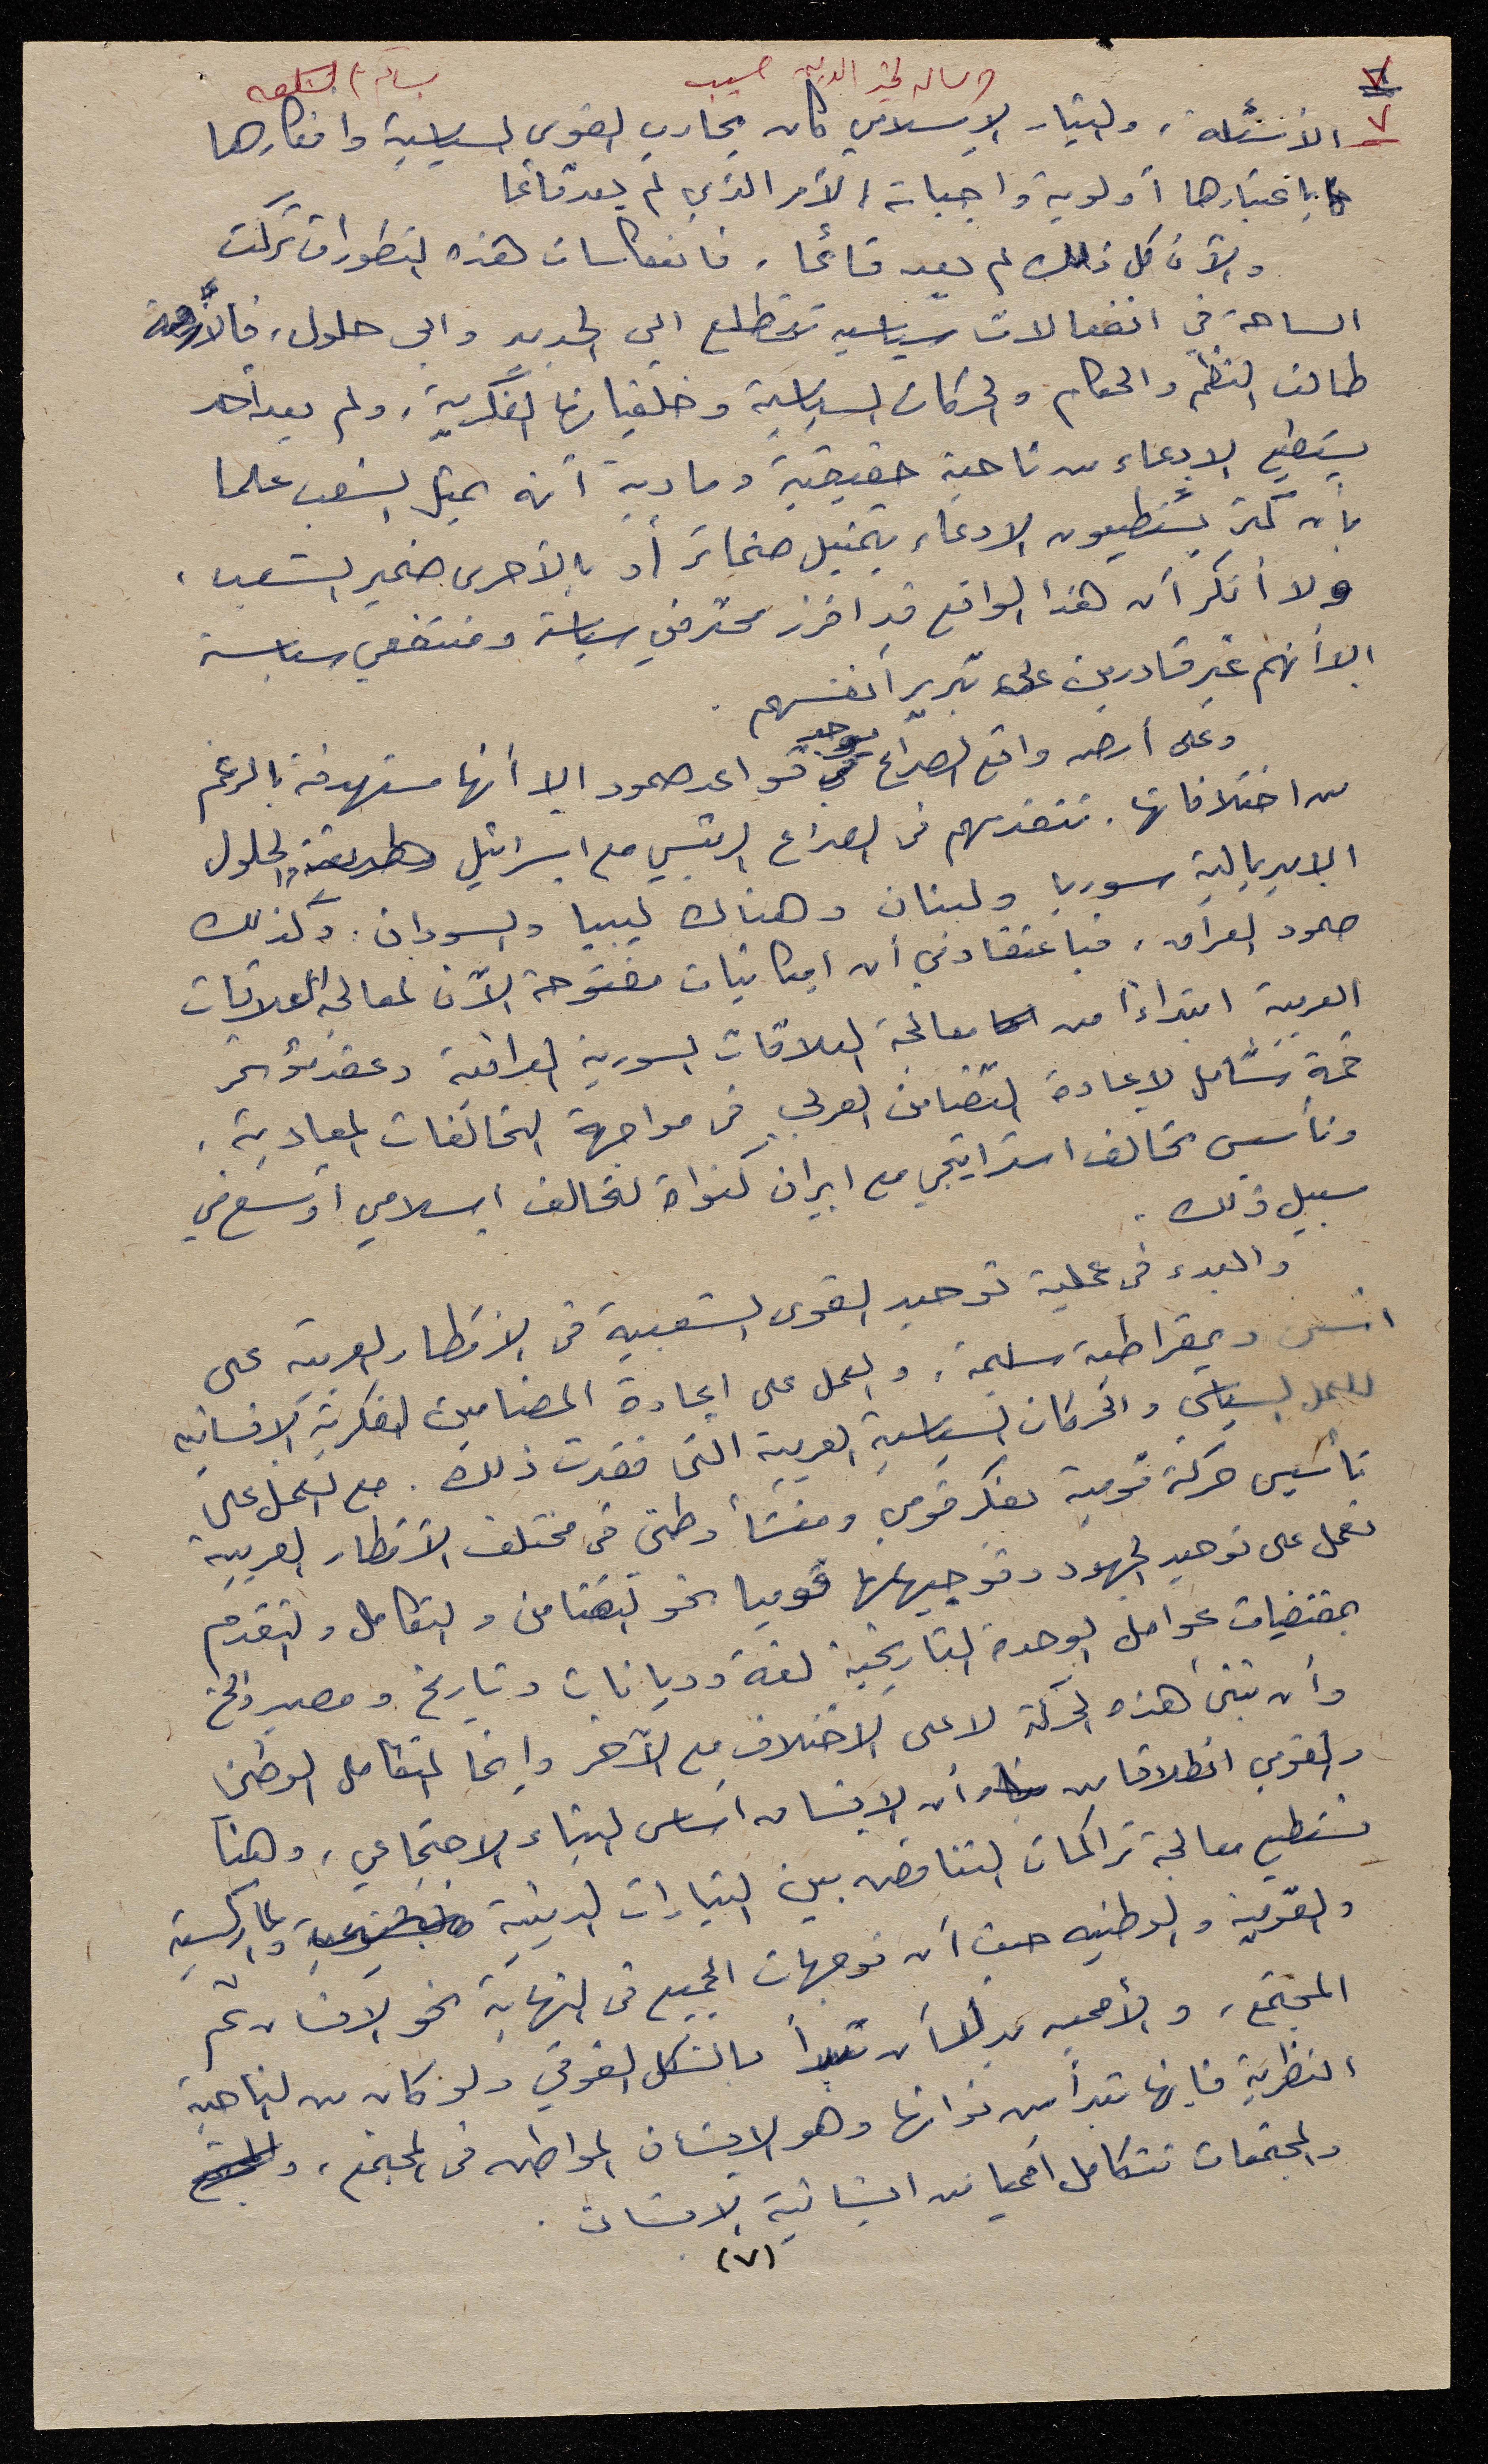 رسالة لخير الدين حسيب
٧
٧
الأسئلة، والتيار الإسلامي كان يحارب القوى السياسية وافكارها
باعتبارها أولوية واجباته، الأمر الذي لم يعد قائما
والآن كل ذلك لم يعد قائما، فانعكاسات هذه التطورات تركت
الساحة في انفعالات سياسيه تتطلع الى الجديد والى حلول، فالأزمة
طالت النظم والحكام والحركات السياسية وخلفياتها الفكرية، ولم يعد أحد
يستطيع الادعاء من ناحية حقيقية ومادية أنه يمثل الشعب علما
بأن كثر يستطيعون الادعاء بتمثيل ضمائر أو بالأحرى ضمير الشعب،
ولا أنكر أن هذا الواقع قد افرز محترفي سياسة ومنتفعي سياسة
الا أنهم غير قادرين على تبرير أنفسهم.
وعلى أرض واقع الصراع يوجد قواعد صمود الا أنها مستهدفة بالرغم
من اختلافاتها. تتقدمهم في الصراع الرئيسي مع اسرائيل والحلول
الامبريالية سوريا ولبنان وهناك ليبيا والسودان. وكذلك
صمود العراق، فباعتقادي أن امكانيات مفتوحة الآن لمعالجة العلاقات
العربية ابتداءً من معالجة العلاقات السورية العراقية وعقد مؤتمر
قمة شامل لاعادة التضامن العربي في مواجهة التحالفات المعادية،
وتأسيس تحالف استراتيجي مع ايران كنواة لتحالف اسلامي أوسع في
سبيل ذلك.
والبدء في عملية توحيد القوى الشعبية في الاقطار العربية على
اسس ديمقراطية سليمة، والعمل على اعادة المضامين الفكرية الانسانيه
للعمل السياسي والحركات السياسية العربية التي فقدت ذلك. مع العمل على
تأسيس حركة قومية بفكر قومي ومنشأ وطني في مختلف الأقطار العربية
تعمل على توحيد الجهود وتوجيهها قوميا نحو التضامن والتكامل والتقدم
بمقتضيات عوامل الوحدة التاريخية لغة وديانات وتاريخ ومصير والخ
وأن تبنى هذه الحركة لا على الاختلاف مع الآخر وانما لتكامل الوطني
والقومي انطلاقا من أن الانسان اساس البناء الاجتماعي، وهنا
نستطيع معالجة تراكمات التناقض بين التيارات الدينية والماركسية
والقومية والوطنيه حيث أن توجهات الجميع في النهاية نحو الانسان ثم
المجتمع، والأمميه بدل أن تبدأ بالشكل الفوقي ولو كان من الناحية
النظرية فإنها تبدأ من نواتها وهو الانسان المواطن في المجتمع،
والمجتمعات تتكامل أمميا من انسانية الانسان.
(٧)